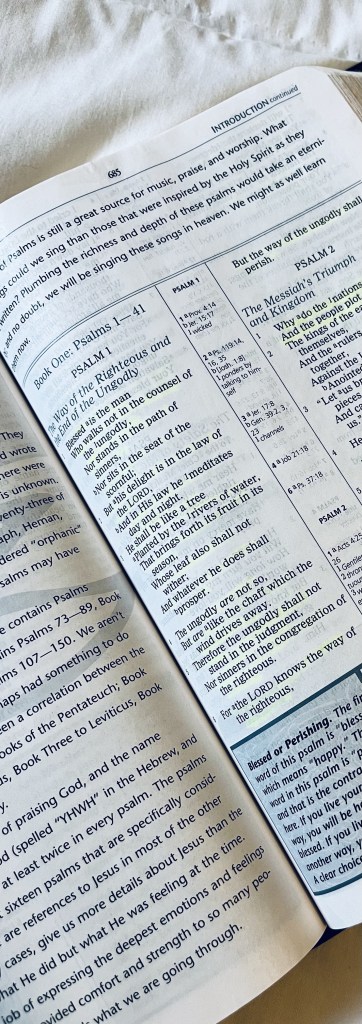 685
INTRODUCTION continued
of Psalms is still a great source for music, praise, and worship. What
could we sing than those that were inspired by the Holy Spirit as they
written? Plumbing the richness and depth of these psalms would take an eterni-
and no doubt, we will be singing these songs in heaven. We might as well learn
now.
Book One: Psalms 1—41
PSALM 1
The Way of the Righteous and
the End of the Ungodly
Blessed is the man
Who walks not in the counsel of
the ungodly,
Nor stands in the path of
sinners,
Nor sits in the seat of the
scornful;
But his delight is in the law of
the LORD,
And in His law he meditates
day and night.
He shall be like a tree
Planted by the rivers of water,
That brings forth its fruit in its
season,
Whose leaf also shall not
wither;
And whatever he does shall
prosper.
The ungodly are not so,
But are like the chaff which the
wind drives away.
Therefore the ungodly shall not
stand in the judgment,
Nor sinners in the congregation of
the righteous.
For the LORD knows the way of
the righteous,
PSALM 1
1 a Prov. 4:14
b Jer. 15:17
1 wicked
2 a Ps. 119:14,
16, 35
b [Josh. 1:8]
1 ponders by
talking to him-
self
3 a Jer. 17:8
b Gen. 39:2, 3,
23
1 channels
4 a Job 21:18
6 a Ps. 37:18
PSALM 2
1 a Acts 4:25,
26
But the way of the ungodly shall
perish.
PSALM 2
The Messiah's Triumph
and Kingdom
1 Why do the nations
And the people plo
2 The kings of the ea
themselves,
And the rulers
together,
Against the
Anointed
3 "Let us
Blessed or Perishing. The
word of this psalm is "ble
which means "happy." Th
word in this psalm is
and that is the con
here. If you live your
way, you will be
blessed. If you
another way, y
A clear cho
They
wrote
here were
is unknown.
enty-three of
aph, Heman,
dered "orphanic"
salms may have
e contains Psalms
ins Psalms 73—89, Book
alms 107—150. We aren't
haps had something to do
een a correlation between the
ooks of the Pentateuch; Book
us, Book Three to Leviticus, Book
y.
of praising God, and the name
od (spelled "YHWH" in the Hebrew, and
at least twice in every psalm. The psalms
t sixteen psalms that are specifically consid-
are references to Jesus in most of the other
cases, give us more details about Jesus than the
hat He did but what He was feeling at the time.
job of expressing the deepest emotions and feelings
vided comfort and strength to so many peo-
s what we are going through.